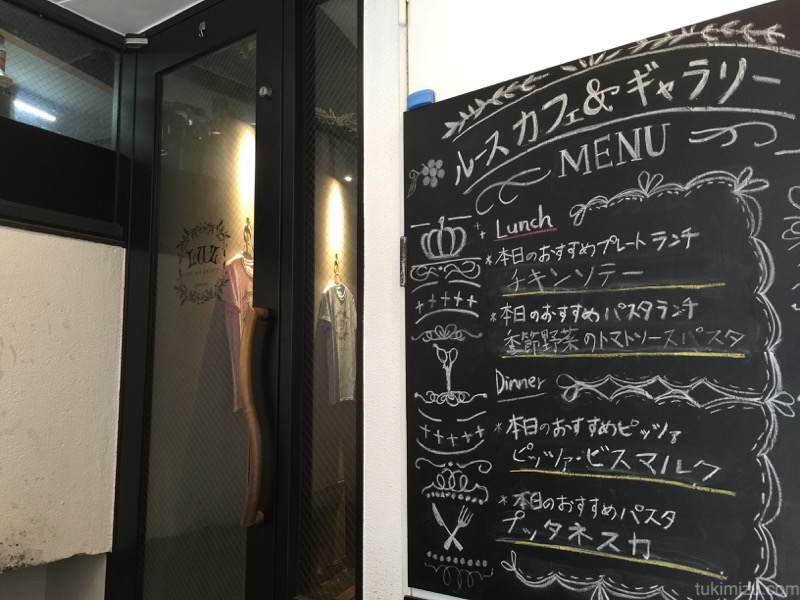 ルース カフェ&ギャラリー
MENU
Lunch
*本日のおすすめプレートランチ
チキンソテー
*本日のおすすめパスタランチ
季節野菜のトマトソースパスタ
Dinner
*本日のおすすめピッツァ
ピッツァ・ビスマルク
*本日のおすすめパスタ
プッタネスカ
tukimizu.com